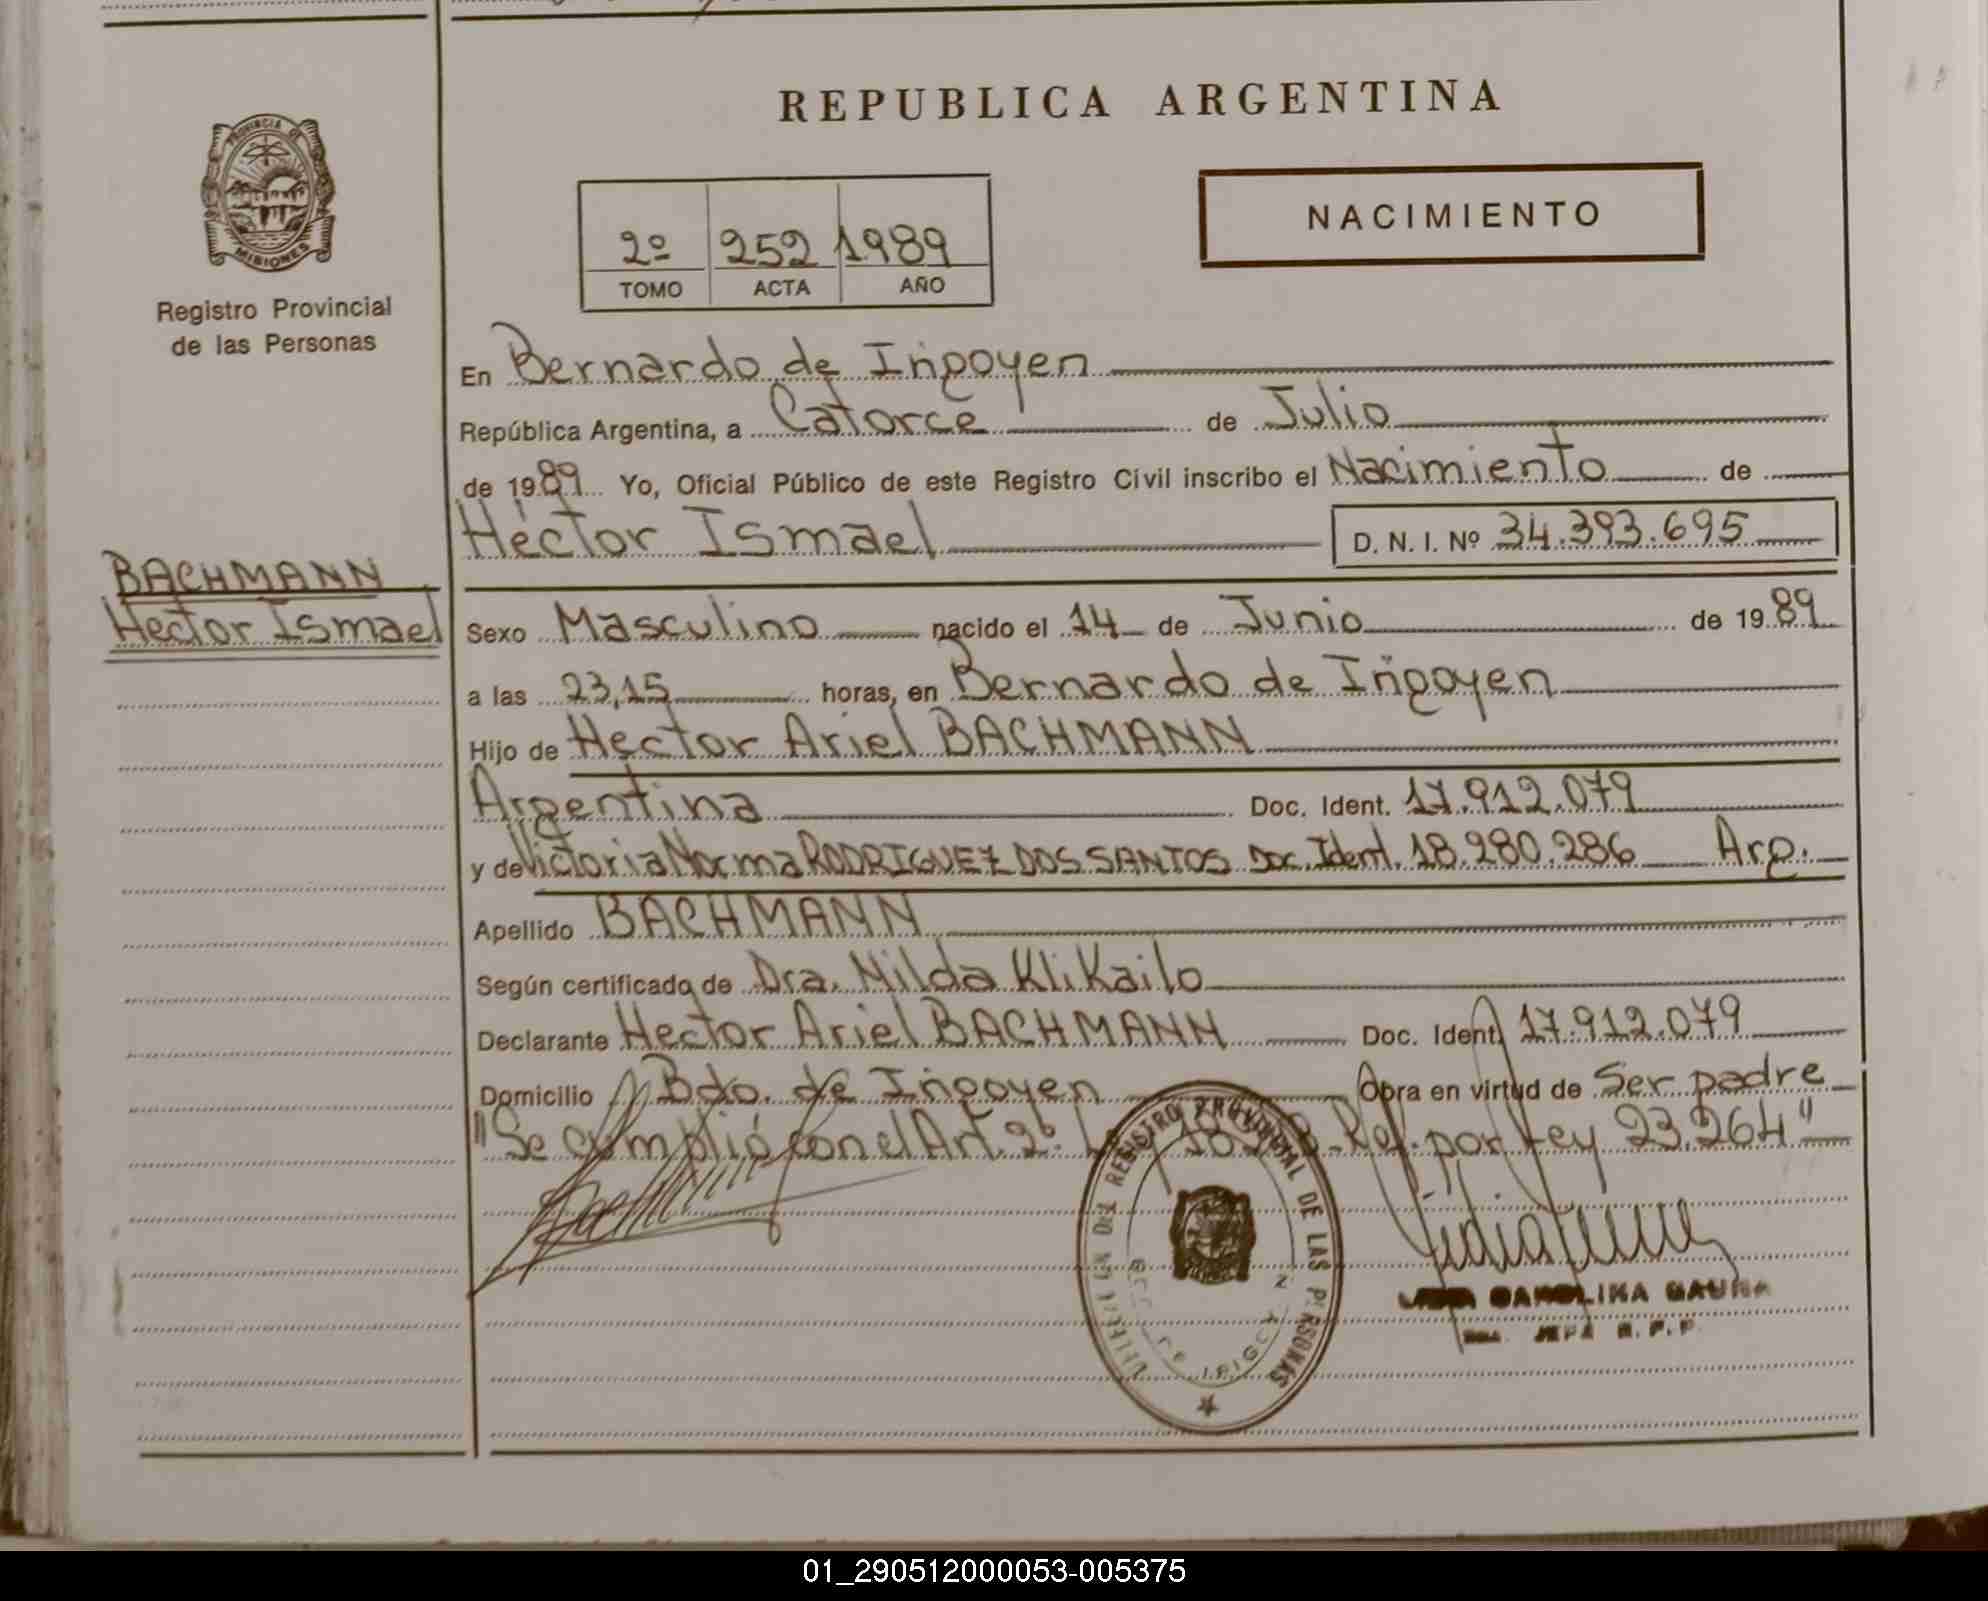 REPUBLICA ARGENTINA
PROVINCIA DE
MISIONES
Registro Provincial
de las Personas
NACIMIENTO
2º 252 1989
TOMO ACTA AÑO
En Bernardo de Irigoyen
República Argentina, a Catorce de Julio
de 1989 Yo, Oficial Público de este Registro Civil inscribo el Nacimiento de
Héctor Ismael D. N. I. Nº 34.393.695
BACHMANN
Hector Ismael
Sexo Masculino nacido el 14 de Junio de 1989
a las 23,15 horas, en Bernardo de Irigoyen
Hijo de Hector Ariel BACHMANN
Argentina Doc. Ident. 17.912.079
y de Victoria Norma RODRIGUEZ DOS SANTOS Doc. Ident. 18.280.286 Arg.
Apellido BACHMANN
Según certificado de Dra. Nilda KliKailo
Declarante Hector Ariel BACHMANN Doc. Ident. 17.912.079
Domicilio Bdo. de Irigoyen Obra en virtud de Ser padre
"Se cumplió con el Art. 2º Ref. por Ley 23.264"
REGISTRO PROVINCIAL DE LAS PERSONAS
CAROLINA GAUNA
JEFA R.P.P.
01_290512000053-005375